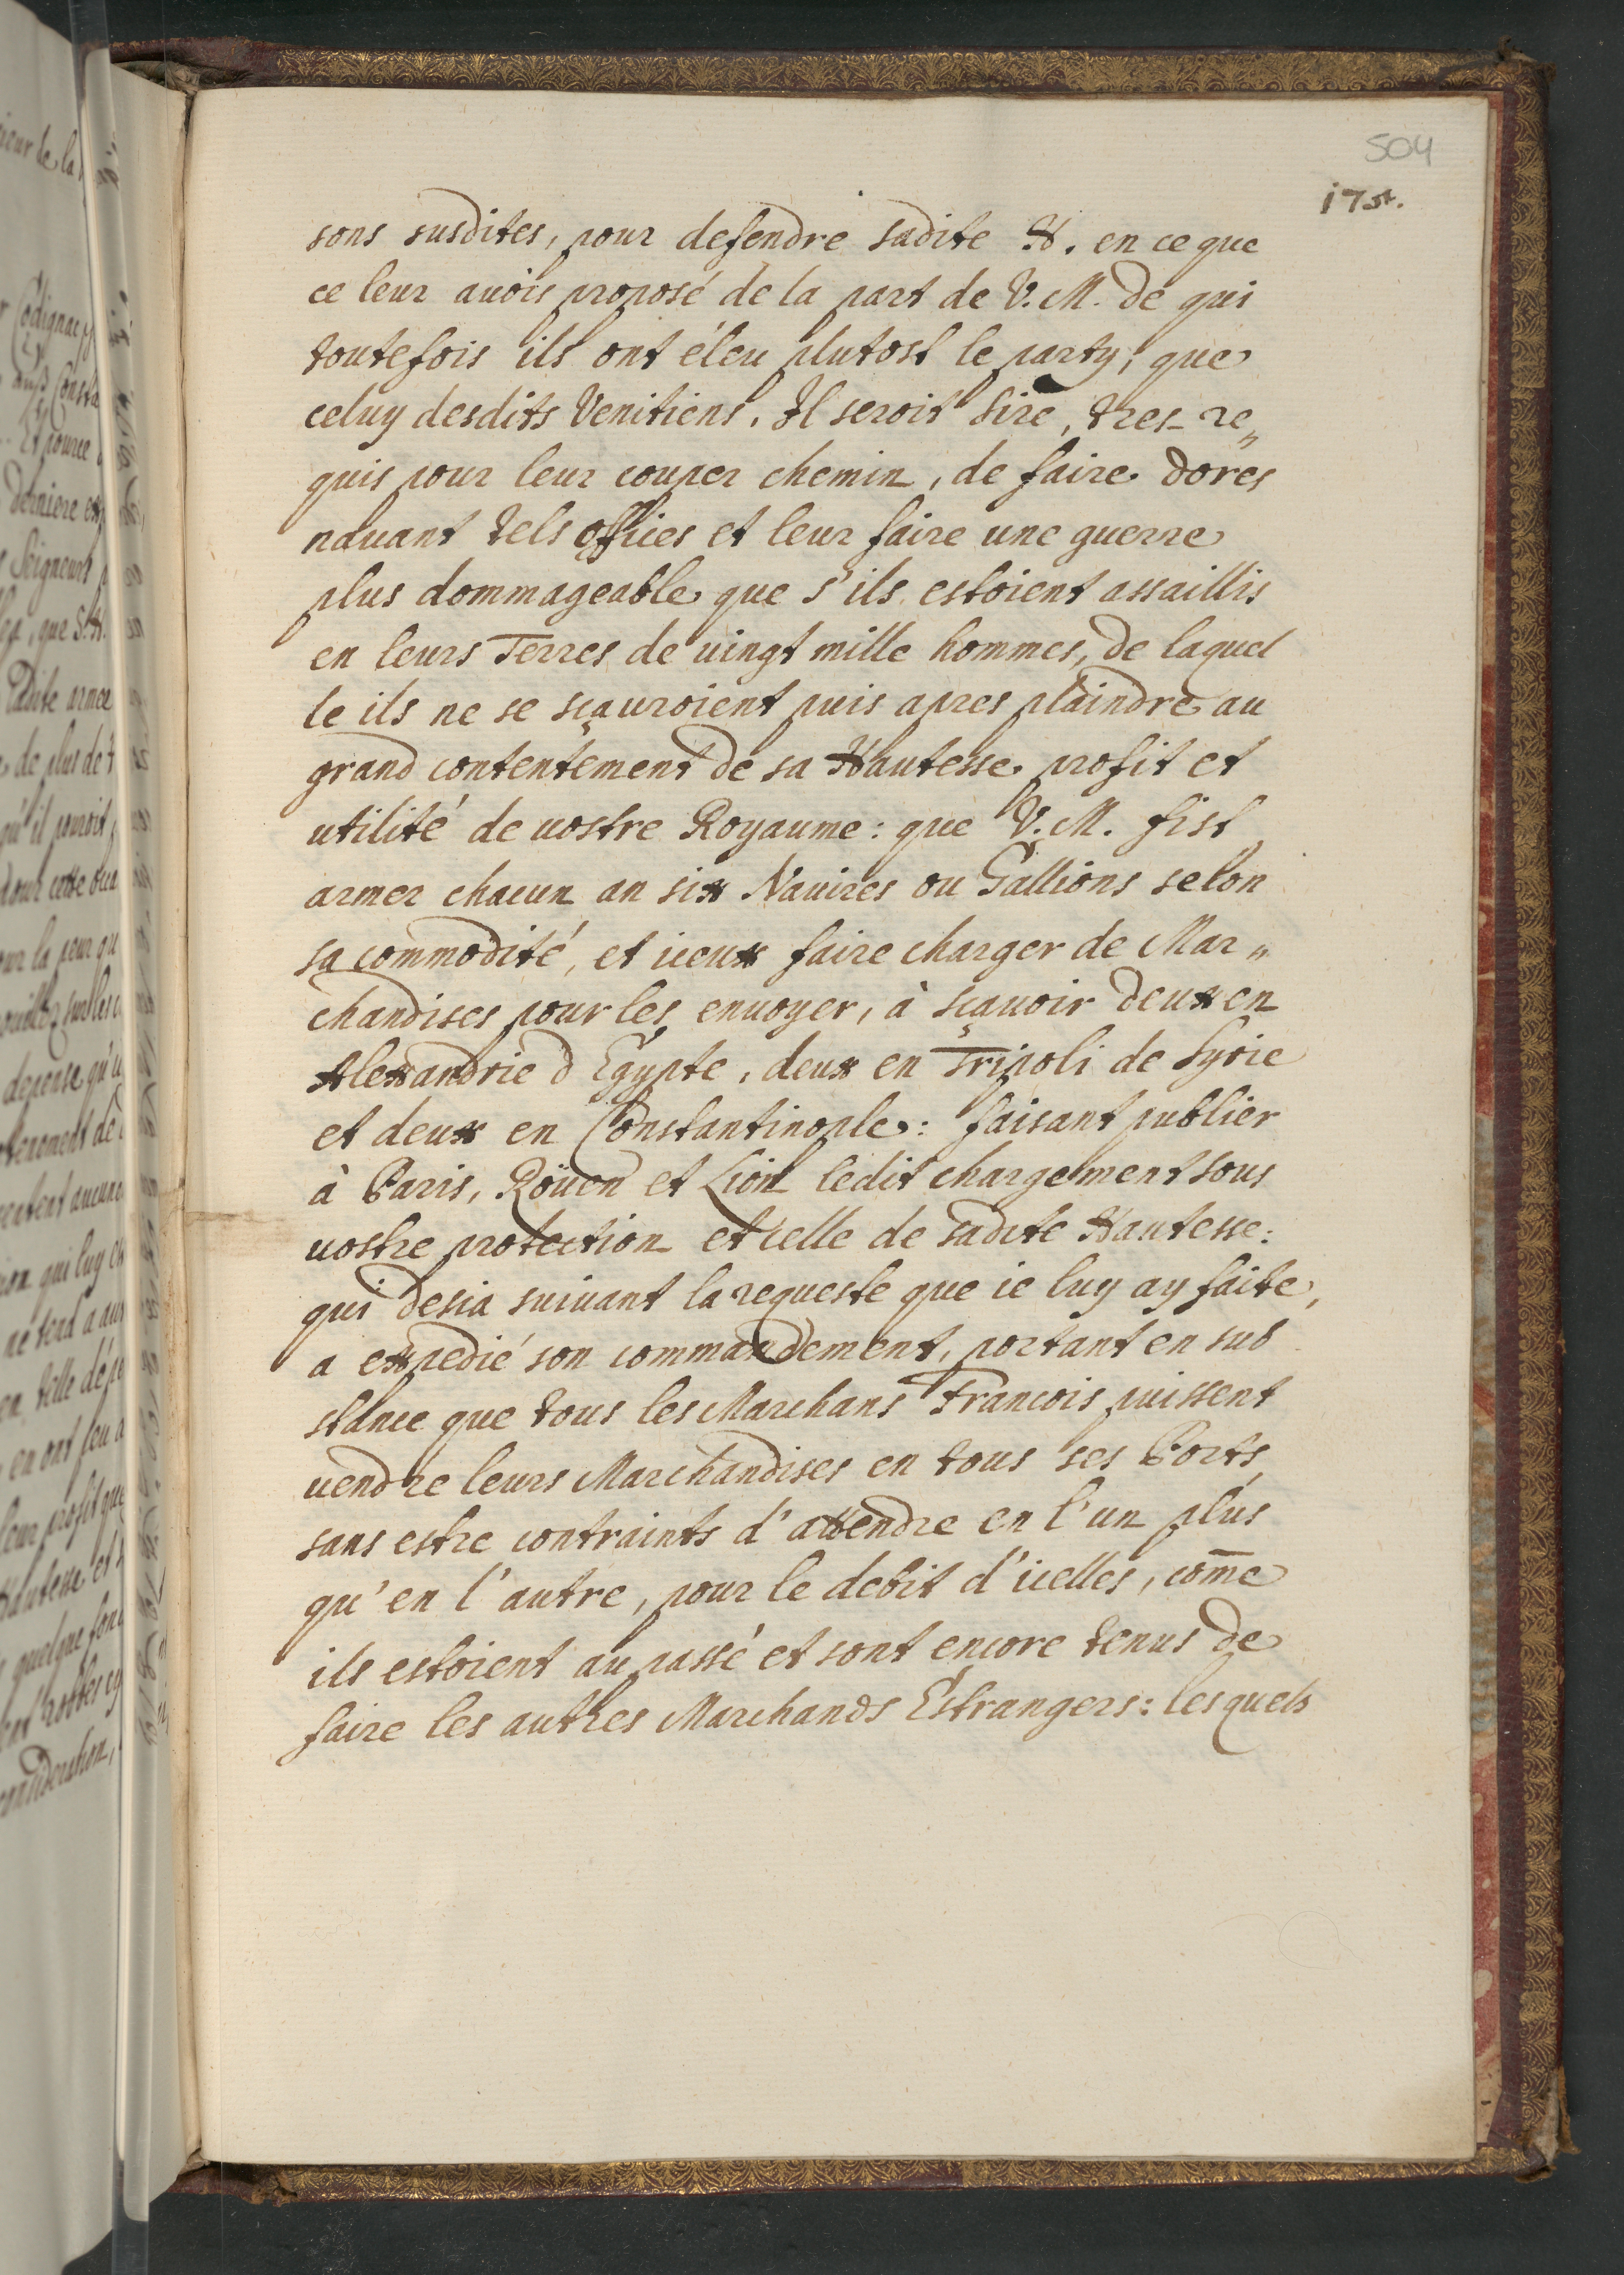 504
i7st.
sons susdites, pour defendre sadite H. en ce que
ce leur auois proposé de la part de V. M. de qui
toutefois ils ont éleu plutost le party, que
celuy desdits Venitiens. Il seroit Sire, tres-re„
quis pour leur couper chemin, de faire dores
nauant tels offices et leur faire une guerre
plus dommageable que s'ils estoient assaillis
en leurs Terres de uingt mille hommes, de laquel
le ils ne se sçauroient puis apres plaindre au
grand contentement de sa Hautesse profit et
utilité de uostre Royaume: que V. M. fist
armer chacun an six Nauires ou Gallions selon
sa commodité, et iceux faire charger de Mar„
chandises pour les enuoyer, à sçauoir deux en
Alexandrie d'Egypte, deux en Tripoli de Syrie
et deux en Constantinople: faisant publier
à Paris, Roüen et Lion ledit chargement sous
uostre protection et celle de sadite Hautesse:
qui desia suiuant la requeste que ie luy ay faite,
a expedié son commandement, portant en sub
stance que tous les Marchans Francois puissent
uendre leurs Marchandises en tous ses Ports
sans estre contraints d'attendre en l'un plus
qu'en l'autre, pour le debit d'icelles, com̄e
ils estoient au passé et sont encore tenus de
faire les autres Marchands Estrangers: lesquels